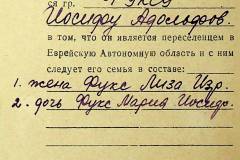 ся гр. Фукс
Иосифу Адольфов.
в том, что он является переселенцем в
Еврейскую Автономную область и с ним
следует его семья в составе:
1. жена Фукс Лиза Изр.
2. дочь Фукс Мария Иосифо.